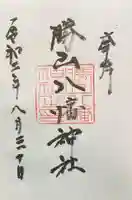 奉拝
勝山八幡神社
令和二年八月三十日